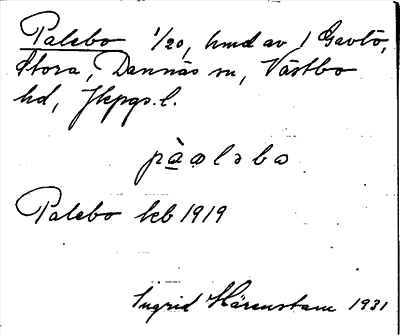 Palsbo 1/20, hmd av 1 Gavlö,
Stora, Dannäs sn, Västbo
hd, Jkpgs. l.
pàaləbo
Palsbo kb 1919
Ingrid Härenstam 1931